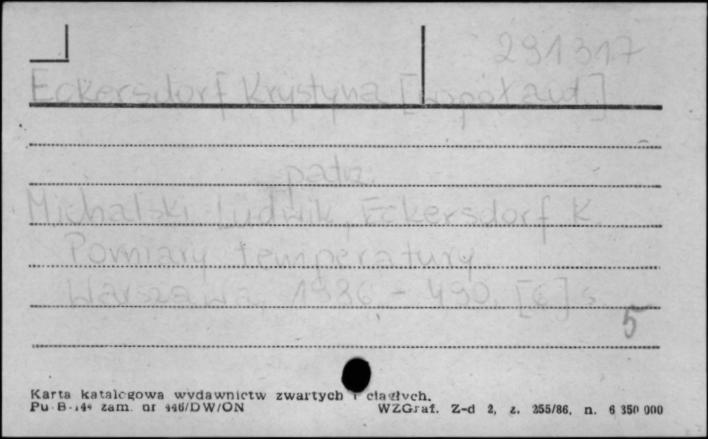 291317
Eckersdorf Krystyna [współaut.]
patrz
Michalski Ludwik, Eckersdorf K.
Pomiary temperatury
Warszawa 1986 - 490, [6] s.
5
Karta katalogowa wydawnictw zwartych i ciągłych.
Pu-B-144 zam. nr 446/DW/ON WZGraf. Z-d 2, z. 255/86, n. 6 350 000